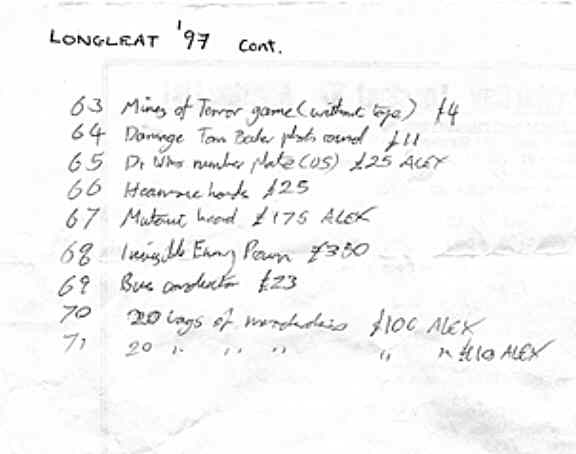 LONGLEAT '97 Cont.
63 Mines of Terror game (without tape) £4
64 Damage Tom Baker photo £11
65 Dr Who number plate (US) £25 ALEX
66 hands £25
67 Mutant head £175 ALEX
68 Invisible Enemy Prawn £350
69 Bus conductor £23
70 20 bags of £100 ALEX
71 20 " " " " " £110 ALEX